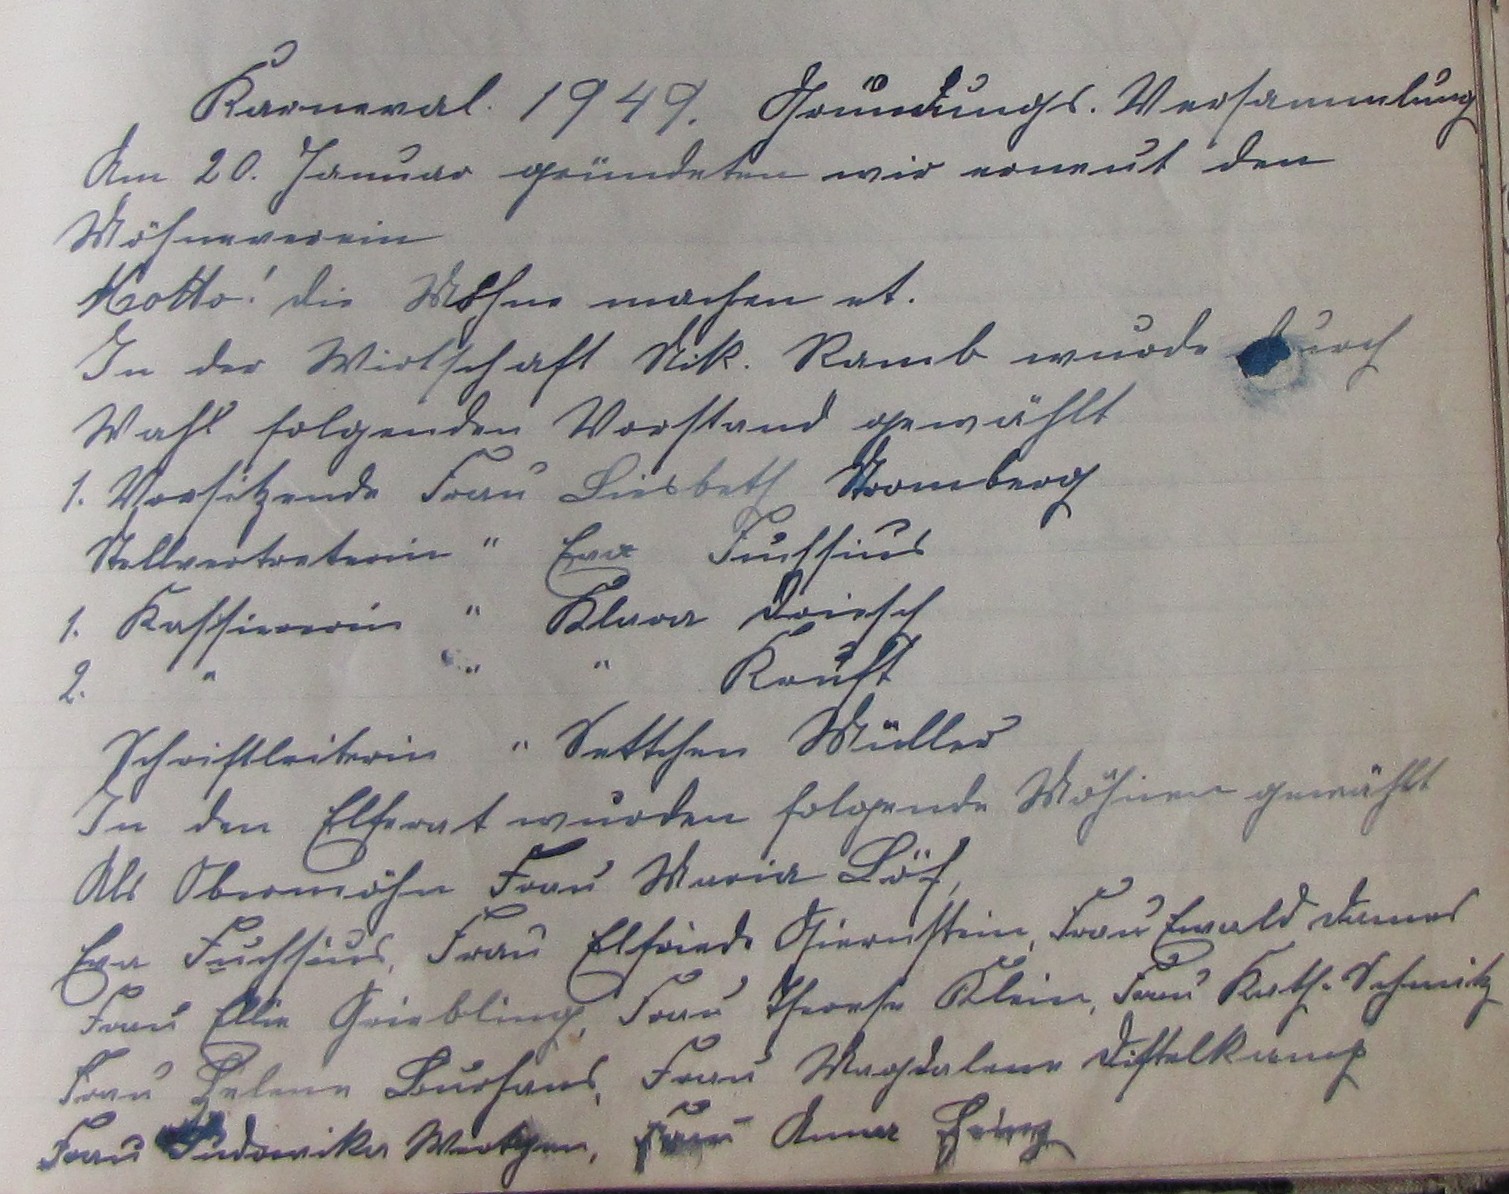 Karneval. 1949. Gründungs. Versammlung
Am 20. Januar gründeten wir erneut den
Möhneverein
Motto! die Möhne machen et.
In der Wirtschaft Nik. Ramb wurde durch
Wahl folgenden Vorstand gewählt
1. Vorsitzende Frau Liesbeth Stromberg
Stellvertreterin " Eva Fuchsius
1. Kassiererin " Klara Driesch
2. " " " Kruft
Schriftleiterin " Settchen Müller
In den Elferat wurden folgende Möhnen gewählt
Als Obermöhn Frau Maria Löf,
Eva Fuchsius, Frau Elfriede Giernstein, Frau Ewald Dames
Frau Ellie Griebling, Frau Therese Klein, Frau Kath. Schmitz
Frau Helene Burhans, Frau Magdalene Distelkamp
Frau Ludowika Wertgen, Frau Anna